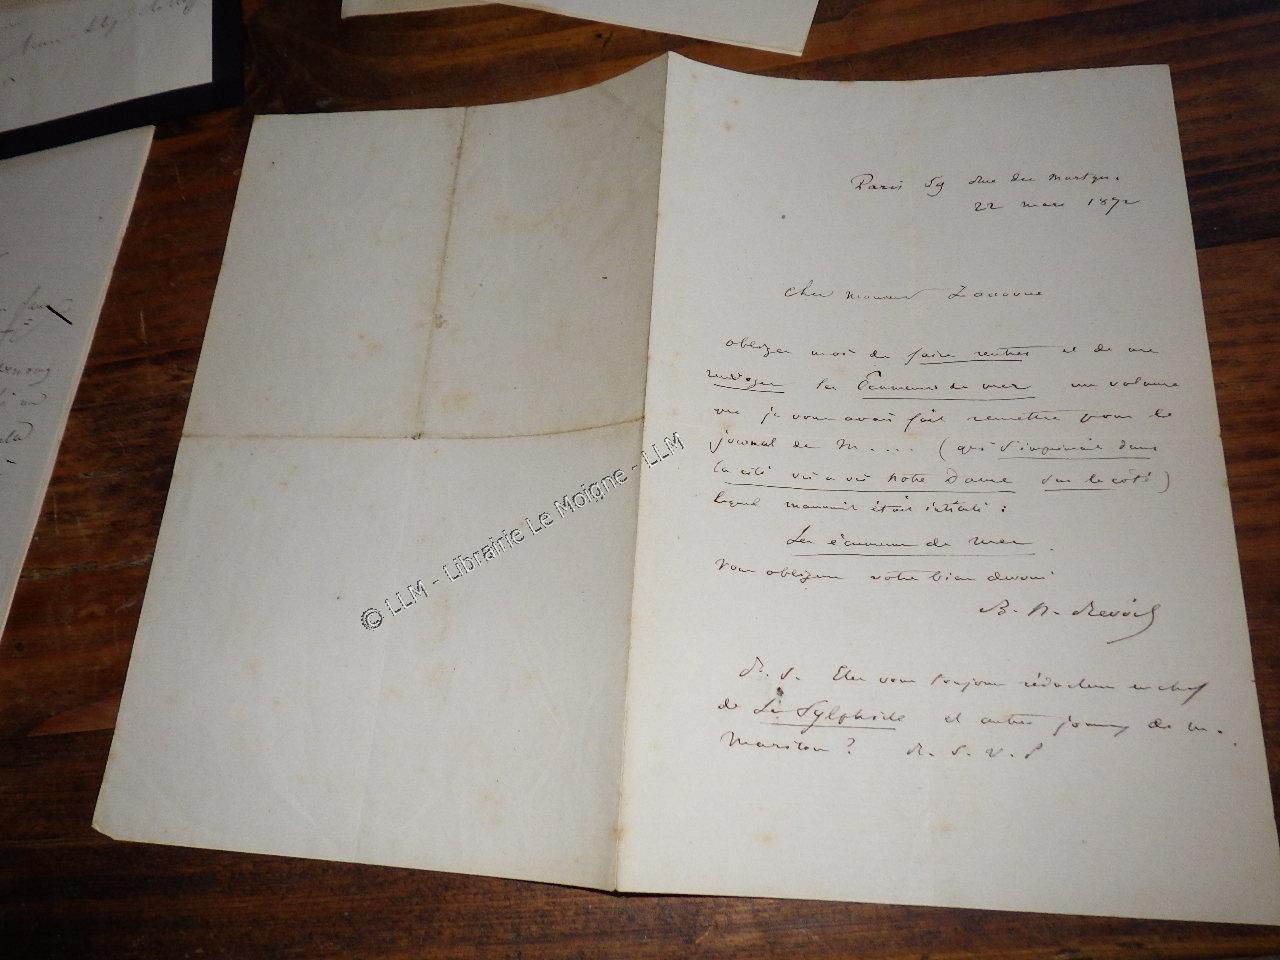 Paris 59 Rue des Martyrs.
22 mars 1872
Cher Monsieur Zaccone
obligez moi de faire rentrer et de me
renvoyer les Ecumeurs de mer un volume
que je vous avais fait remettre pour le
journal de M.... (qui s'imprimait dans
la cité vis a vis Notre Dame sur le côté)
lequel manuscrit était intitulé :
Les écumeurs de mer.
Vous obligerez votre bien dévoué
B. H. Révoil
P. S. Etes vous toujours rédacteur en chef
de La Sylphide et autres journx de M.
Mariton ? R. S. V. P
© LLM - Librairie Le Moigne - LLM